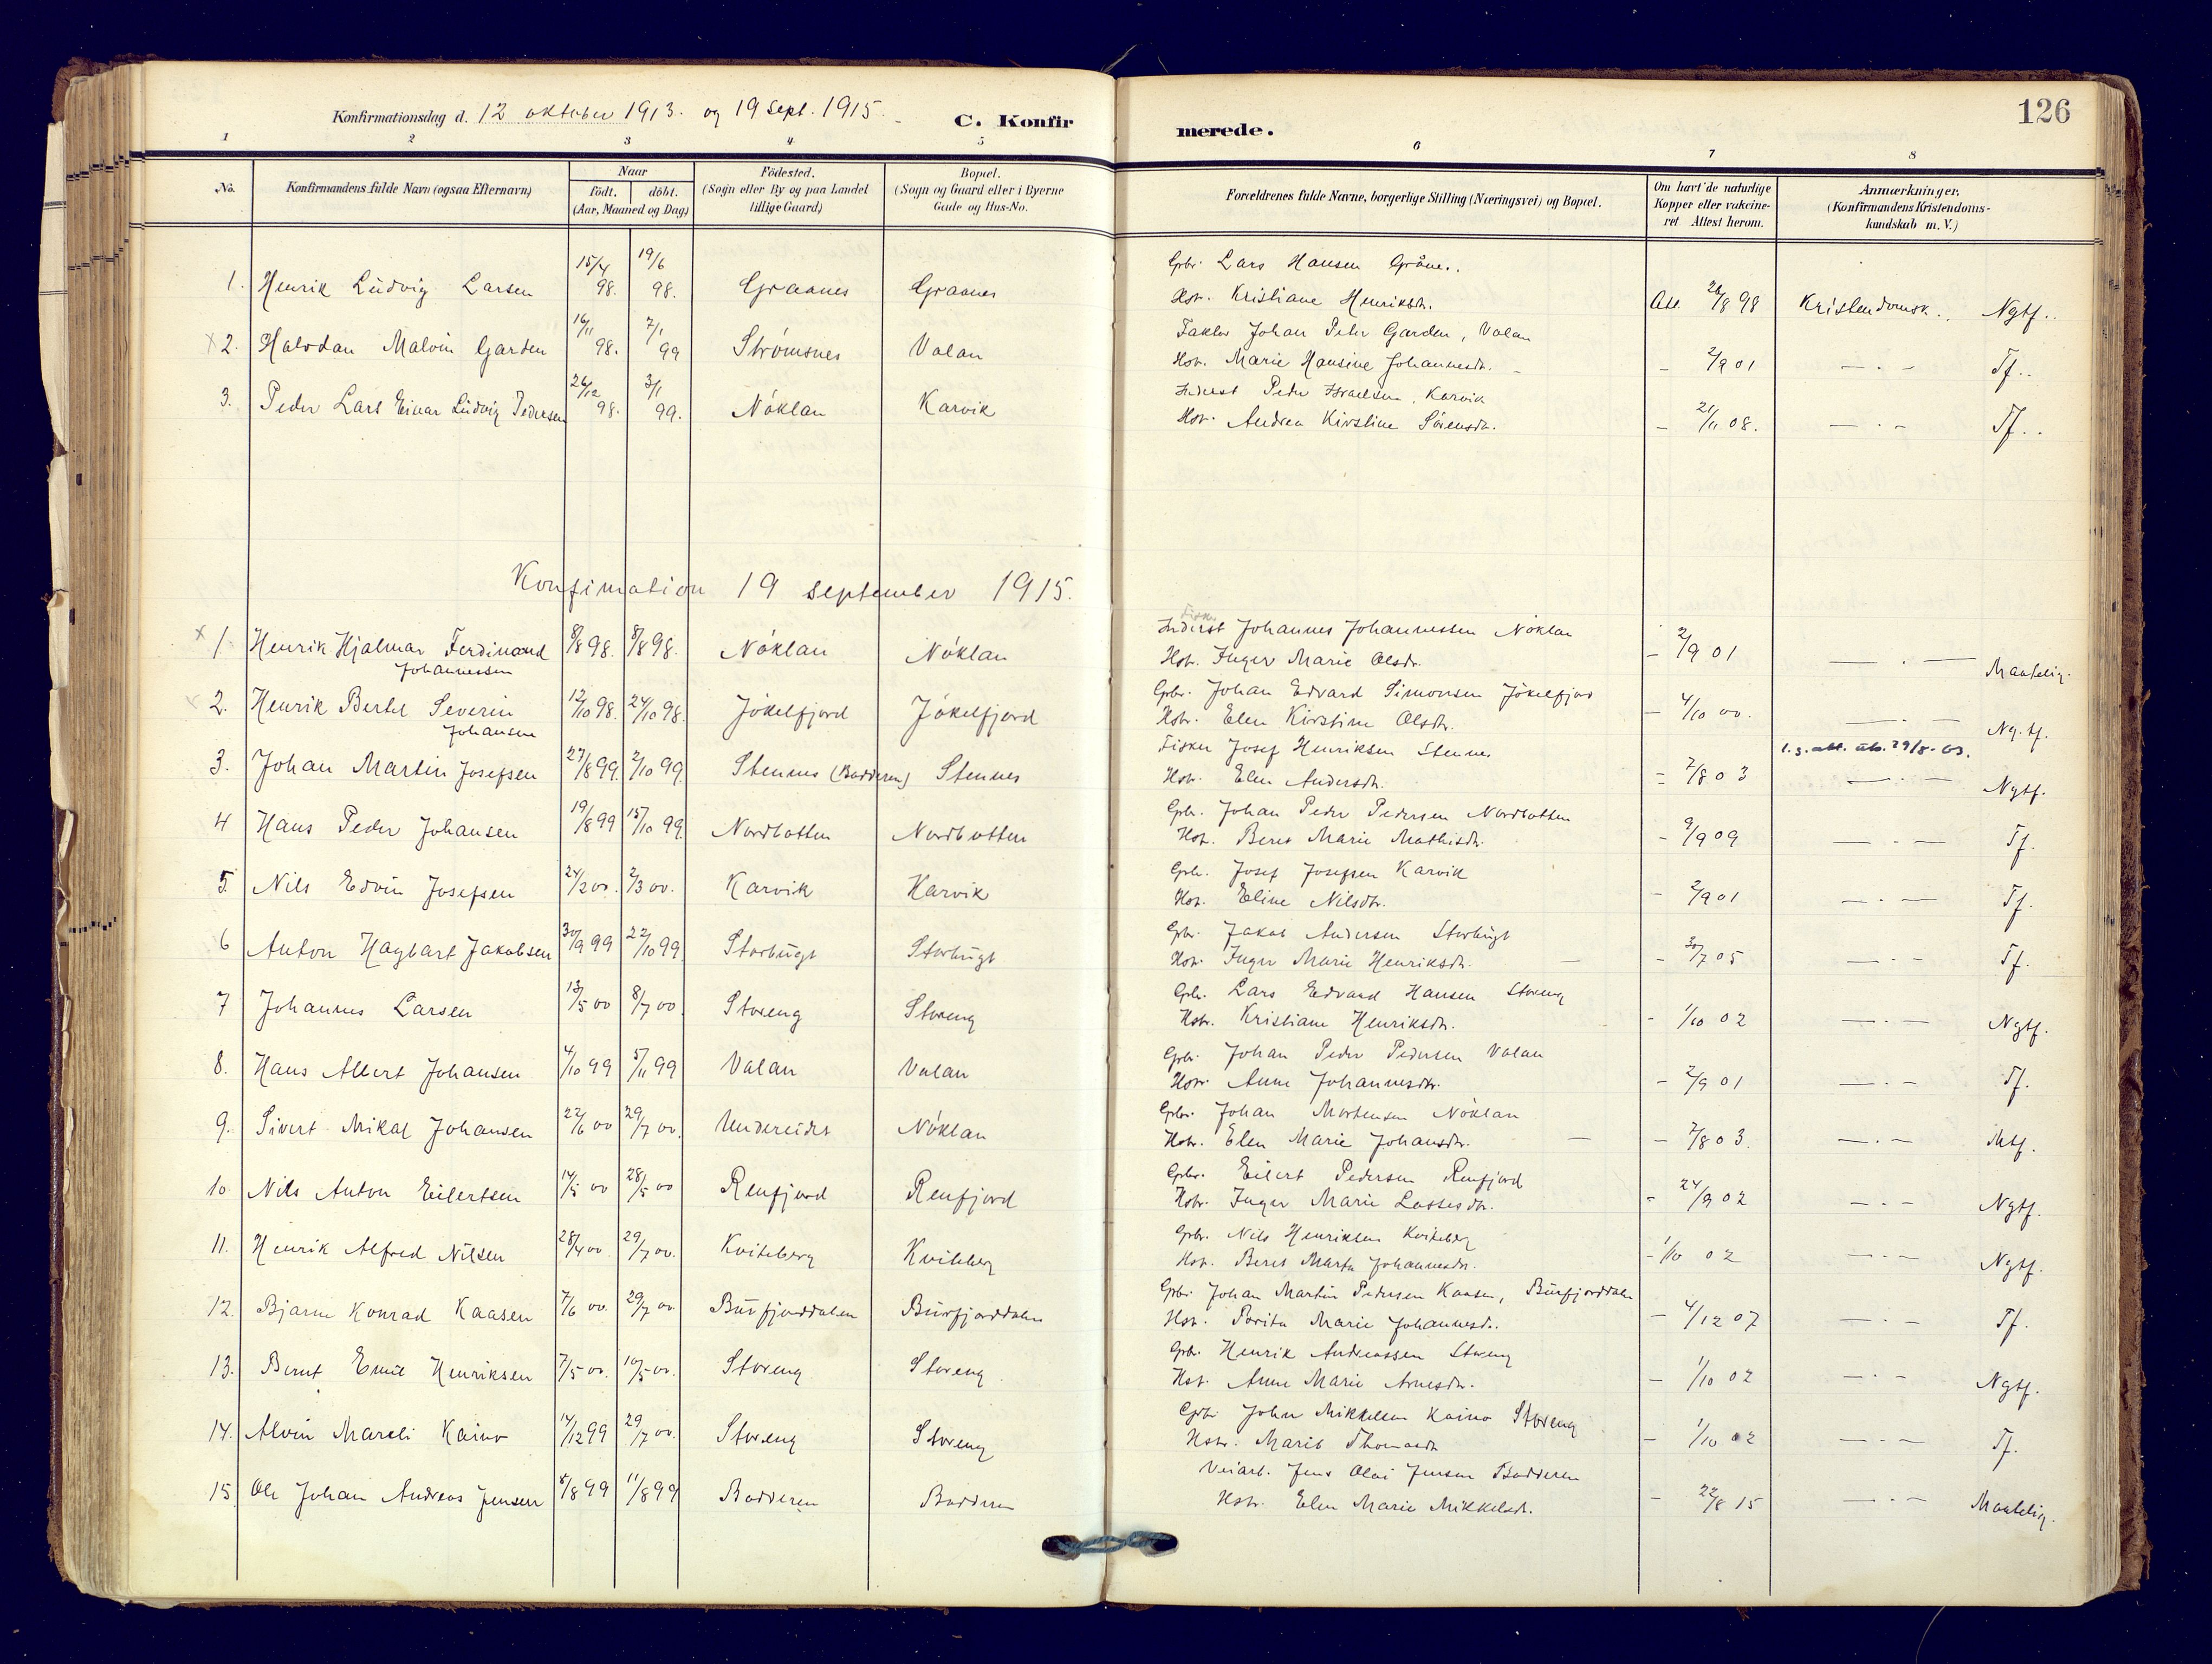 126
Konfirmationsdag d. 12 oktober 1913. og 19 sept. 1915.
C. Konfirmerede.
1 2 3 4 5 6 7 8
No. Konfirmandens fulde Navn (ogsaa Efternavn) Naar födt. döbt. (Aar, Maaned og Dag) Födested. (Sogn eller By og paa Landet tillige Gaard) Bopæl. (Sogn og Gaard eller i Byerne Gade og Hus-No. Forældrenes fulde Navne, borgerlige Stilling (Næringsvei) og Bopæl. Om havt de naturlige Kopper eller vakcineret Attest herom. Anmærkninger. (Konfirmandens Kristendomskundskab m. V.)
1. Henrik Ludvig Larsen 15/4 98. 19/6 98. Graanes Graanes Gbr. Lars Hansen Gråne..
Hstr. Kristiane Henriksdtr. Att. 26/8 98 Kristendomsk.. Ngtf..
x 2. Halvdan Malvin Garden 16/11 98. 7/1 99 Strömsnes Valan Faktor Johan Peter Garden, Valan
Hstr. Marie Hansine Johannesdtr. - - 2/9 01 — . — Tf..
3. Peder Lars Einar Ludvig Pedersen 26/12 98. 3/1 99. Nöklan Karvik Inderst Peder Israelsen, Karvik
Hstr. Andrea Kirstine Sörensdtr. - 21/11 08. — . — Tf..
Konfimation 19 september 1915.
x 1. Henrik Hjalmar Ferdinand Johannessen 8/8 98. 8/8 98. Nöklan Nöklan Fisker Inderst Johannes Johannessen Nöklan
Hstr. Inger Marie Olsdr. - 2/9 01 — . — Maatelig.
x 2. Henrik Bertel Severin Johansen 12/10 98. 24/10 98. Jökelfjord Jökelfjord Gbr. Johan Edvard Simonsen Jökelfjord
Hstr. Elen Kirstine Olsdtr. - 4/10 00. — . — Ng.tf.
3. Johan Martin Josefsen 27/8 99. 2/10 99. Stennes (Badderen) Stennes Fisker Josef Henriksen Stennes
Hstr. Elen Andersdtr. - 7/8 03 — . — Ngtf.
4 Hans Peder Johansen 19/8 99 15/10 99. Nordbotten Nordbotten Gbr. Johan Peder Pedersen Nordbotten
Hstr. Beret Marie Mathisdtr. - 9/9 09 — . — Tf.
5. Nils Edvin Josefsen 24/2 00. 2/3 00. Karvik Karvik Gbr. Josef Josefsen Karvik
Hstr. Eline Nilsdtr. - 2/9 01 — . — Tf.
6 Anton Hagbart Jakobsen 30/9 99 22/10 99. Storbugt Storbugt Gbr. Jakob Andersen Storbugt
Hstr. Inger Marie Henriksdtr. — - 30/7 05 — . — Tf.
7 Johannes Larsen 13/5 00 8/7 00. Storeng Storeng Gbr. Lars Edvard Hansen Storeng
Hstr. Kristiane Henriksdtr. - 1/10 02 — . — Ngtf.
8. Hans Albert Johansen 4/10 99 5/11 99 Valan Valan Gbr. Johan Peder Pedersen Valan
Hstr. Anne Johannesdtr. - 2/9 01 — . — Tf.
9. Sivert Mikal Johansen 22/6 00 29/7 00. Undereidet Nöklan Gbr. Johan Mortensen Nöklan
Hstr. Elen Marie Johansdtr. — - 7/8 03. — . — Mtf.
10 Nils Anton Eilertsen 14/5 00 28/5 00 Renfjord Renfjord Gbr. Eilert Pedersen Renfjord
Hstr. Inger Marie Lassesdtr. - 24/9 02 — . — Ngtf.
11. Henrik Alfred Nilsen 28/4 00. 29/7 00. Kviteberg Kviteberg Gbr. Nils Henriksen Kviteberg
Hstr. Beret Marta Johannesdtr. - 1/10 02 — . — Ngtf.
12. Bjarne Konrad Kaasen 7/6 00. 29/7 00. Burfjorddalen Burfjorddalen Gbr. Johan Martin Pedersen Kaasen, Burfjorddalen
Hstr. Marie Johannesdtr. - 4/12 07 — . — Tf.
13. Bernt Emil Henriksen 7/5 00. 10/5 00. Storeng Storeng Gbr. Henrik Andreassen Storeng
Hstr. Anne Marie Arnesdtr. - 1/10 02 — . — Ngtf.
14. Alvin Mareli Kaino 14/12 99 29/7 00. Storeng Storeng Gbr. John Mikkelsen Kaino Storeng
Hstr. Marit Thomasdtr - 1/10 02 — . — Tf.
15. Ole Johan Andreas Jensen 8/8 99 11/8 99 Badderen Badderen Veiarb. Jens Olai Jensen Badderen
Hstr. Elen Marie Mikkelsdtr. - 22/8 15 — . — Maatelig.